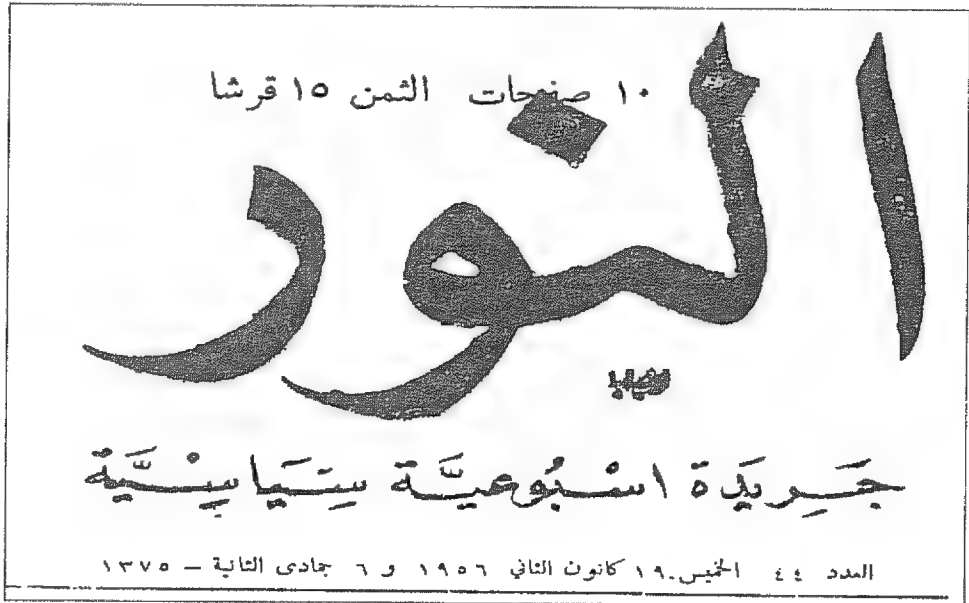 ١٠ صفحات الثمن ١٥ قرشا
النور
جَريدَة اسْبُوعيَّة سِيَاسِيَّة
العدد ٤٤ الخميس ١٩ كانون الثاني ١٩٥٦ و ٦ جمادى الثانية – ١٣٧٥